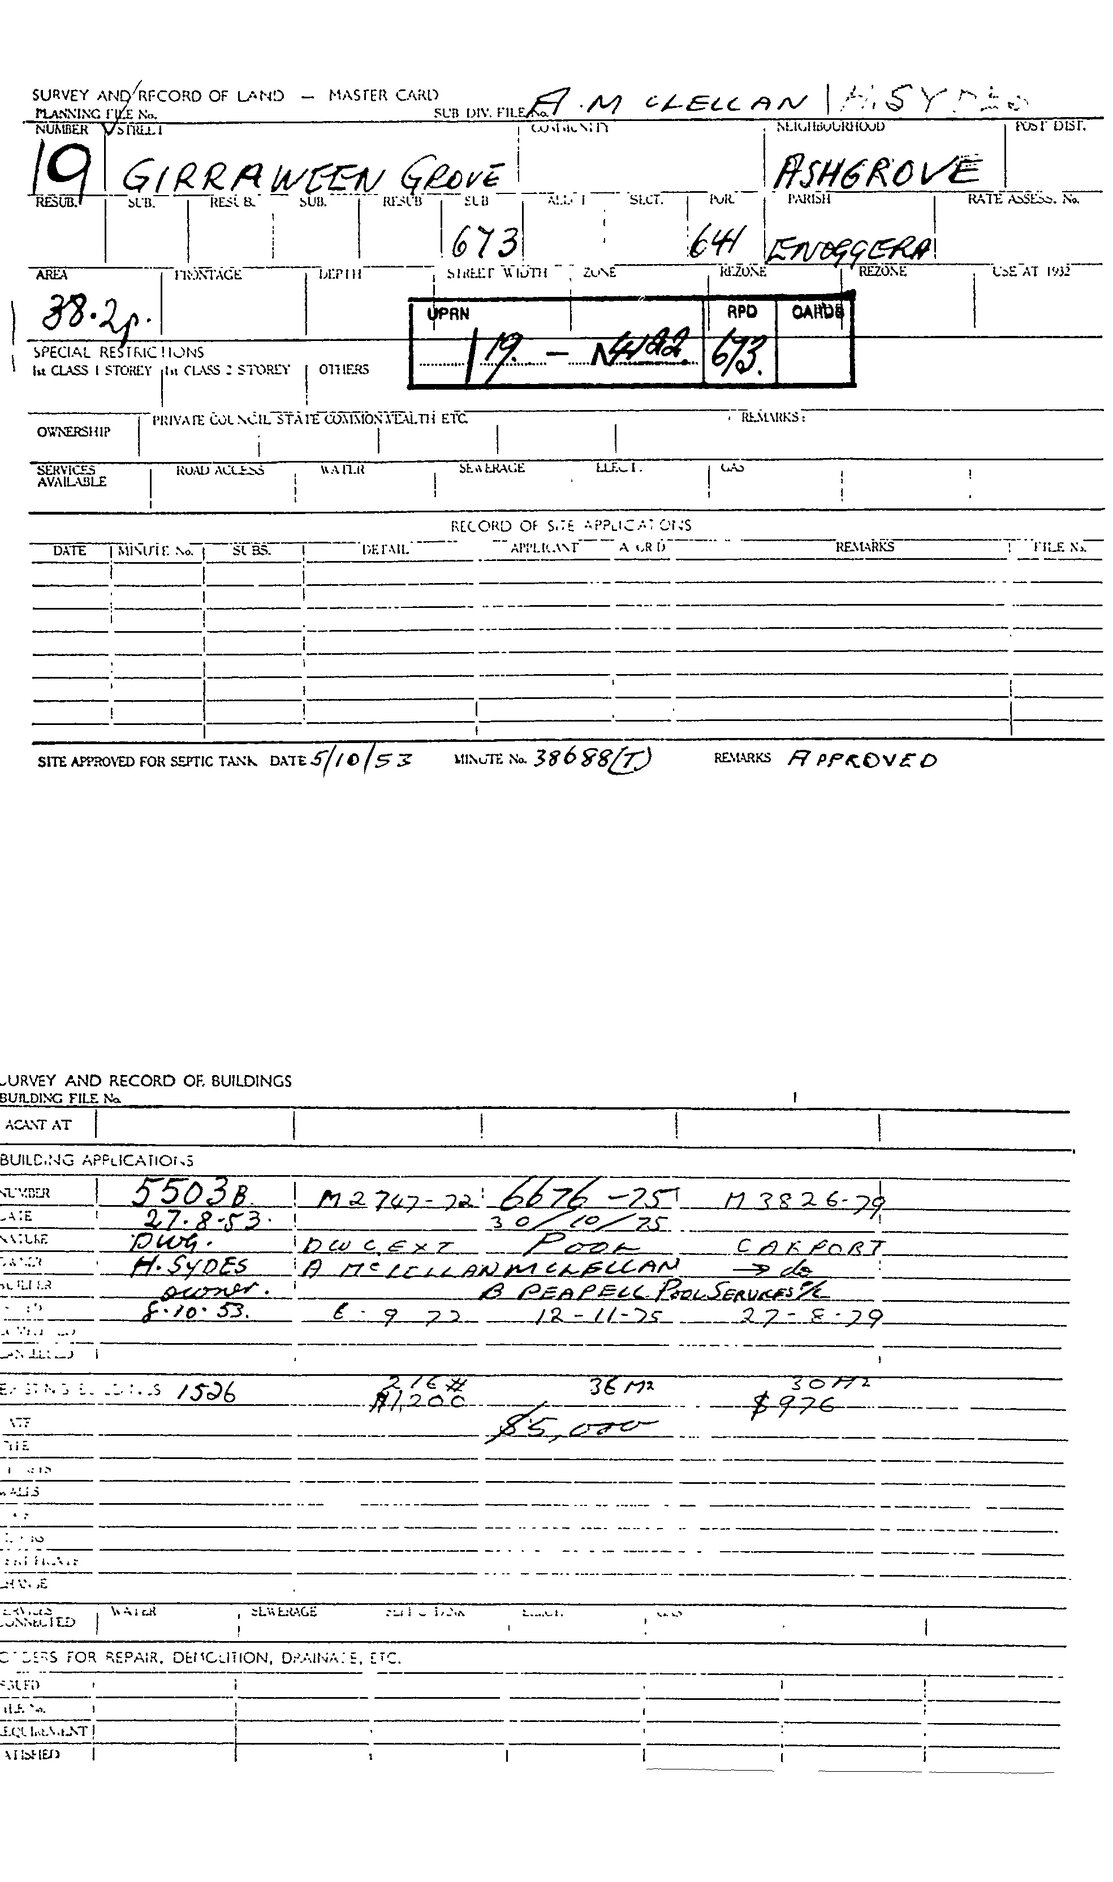 SURVEY AND RECORD OF LAND — MASTER CARD A. MCLELLAN H. SYDES
PLANNING FILE No. SUB DIV. FILE No.
NUMBER STREET COMMUNITY NEIGHBOURHOOD POST DIST.
19 GIRRAWEEN GROVE ASHGROVE
RESUB. SUB. RESUB. SUB. RESUB SUB ALLOT SECT. POR. PARISH RATE ASSESS. No.
673 641 ENOGGERA
AREA FRONTAGE DEPTH STREET WIDTH ZONE REZONE REZONE USE AT 1952
38.2p.
UPRN RPD CARDS
119. — 673.
SPECIAL RESTRICTIONS
1st CLASS 1 STOREY 1st CLASS 2 STOREY OTHERS
OWNERSHIP PRIVATE COUNCIL STATE COMMONWEALTH ETC. REMARKS:
SERVICES ROAD ACCESS WATER SEWERAGE ELECT. GAS
AVAILABLE
RECORD OF SITE APPLICATIONS
DATE MINUTE No. SUBS. DETAIL APPLICANT A OR D REMARKS FILE No.
SITE APPROVED FOR SEPTIC TANK DATE 5/10/53 MINUTE No. 38688(T) REMARKS APPROVED
SURVEY AND RECORD OF BUILDINGS
BUILDING FILE No.
ACANT AT
BUILDING APPLICATIONS
NUMBER 5503B. M2747-72 6676-75 M3826-79
DATE 27.8.53. 30/10/75
NATURE DWG. DWG EXT POOL CARPORT
OWNER H. SYDES A McLELLAN MCLELLAN → do
BUILDER owner. B PEAPELL POOL SERVICES P/L
8.10.53. 6-9 72 12-11-75 27-8-79
EXISTING BUILDINGS 1526 216# 36M2 30M2
$1,200 $976
$5,000
DATE
WALLS
CHANGE
SERVICES WATER SEWERAGE SEPTIC TANK ELECT. GAS
CONNECTED
ORDERS FOR REPAIR, DEMOLITION, DRAINAGE, ETC.
ISSUED
FILE No.
REQUIREMENT
ATISFIED